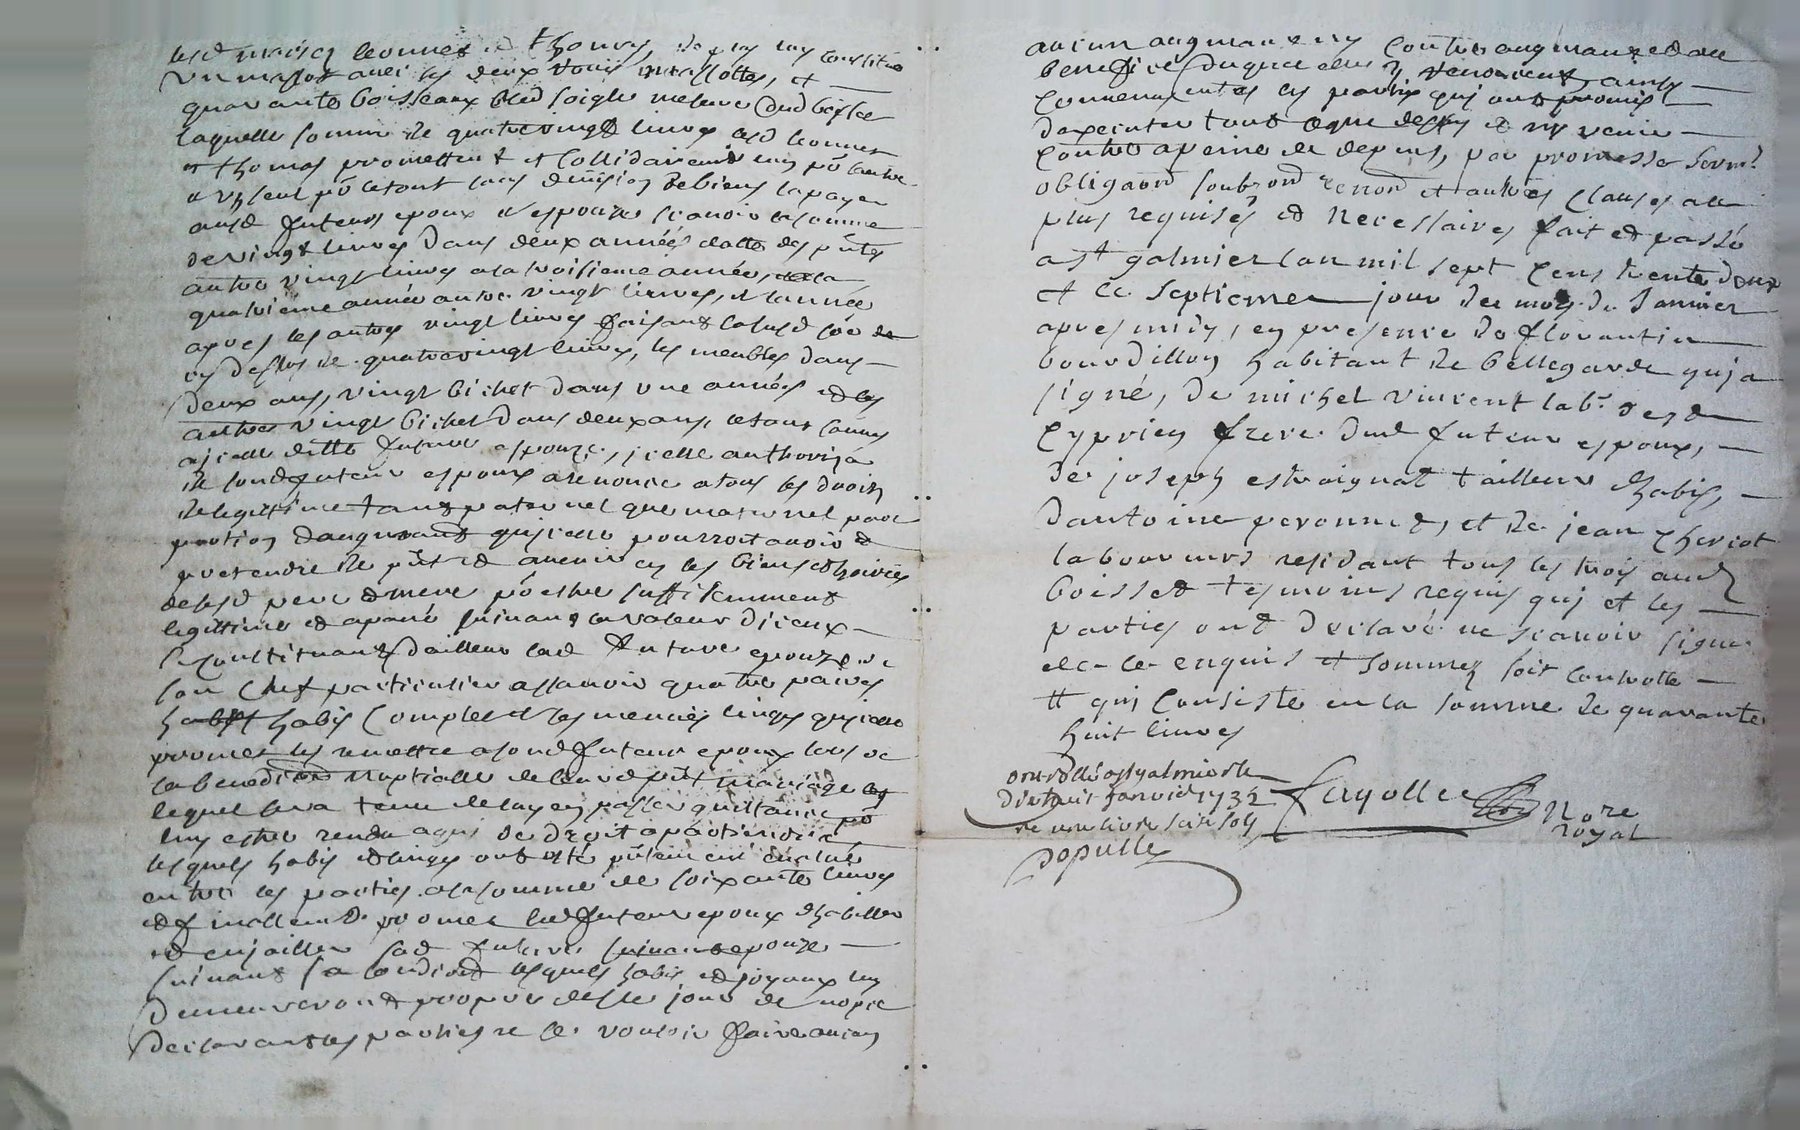 lesd mariez leonnet et thomas, de plus luy constitue
un
quarante boisseaux bled soigle mesure dud
laquelle somme de quatrevingt livres lesd leonnet
et thomas promettent et sollidairement un po lautre
un seul po letout sans division de biens la payer
ausd futeurs epoux et espouze scavoir la somme
de vingt livres dans deux années datte des pntes
autre vingt livres a la troisieme année,
quatrieme année autre vingt livres, et lannée
apres les autres vingt livres faisant la susd
cy dessus de quatrevingt livres, les meubles dans
deux ans, vingt bichet dans une années et les
autres vingt bichet dans deux ans,
a jcelle ditte future espouze, jcelle authorizé
de sond futeur espoux a renoncé a tous les droits
de legittime tant paternel que maternel part
portion daugmant qujcelle pourroit avoir et
pretendre de pnt et avenir en les biens et hoiries
desesd pere et mere po estre suffisemment
legittimé et apané suivant la valeur diceux
se constituant dailleur lad future epouze de
son chef particulier assavoir quatre paires
habis complet et les menües linges qujcelle
promet les remettre a sond futeur epoux lors de
la benediction nuptialle de leurd pnt mariage
lequel sera tenu de luy en passer quittance po
luy estre rendu a qui de droit apartiendra
lesquels habis et linges ont esté pntement evalué
entre les parties a la somme de soixante livres
et finallement promet led futeur epoux dhabiller
et enjoailler sad future epouze
suivant sa condiond lesquels habis et joyaux luy
demeureront propres desle jour de nopce
declarant les parties ne se vouloir faire aucun
aucun augmant ny contre augmant et au
benefice duquel elles y renoncent, ainsy
convenu entre les parties quj ont promis
dexecuter tout ce que dessus et ny venir
contre a peine de depens, par promesse serm.t
obligaond soubzond renond et autres clauses au
plus requises et necessaires fait et passé
a st galmier lan mil sept cens trente deux
et le septieme jour du mois de Janvier
apres midy, en presence de florantin
bourdillon habitant de bellegarde quj a
signé, de michel vincent lab.r de st
cyprien frere dud futeur espoux,
de joseph estraignat tailleur dhabis,
dantoine peronnet, et de jean cheriot
laboureurs residant tous les trois aud
boisset tesmoins requis quj et les
parties ont declaré ne scavoir signer
de ce enquis et sommez soit controlle
# quj consiste en la somme de quarante
huit livres
controllé a st galmier le
dixhuit janvier 1732
Fayolle No.re
royal
Populle